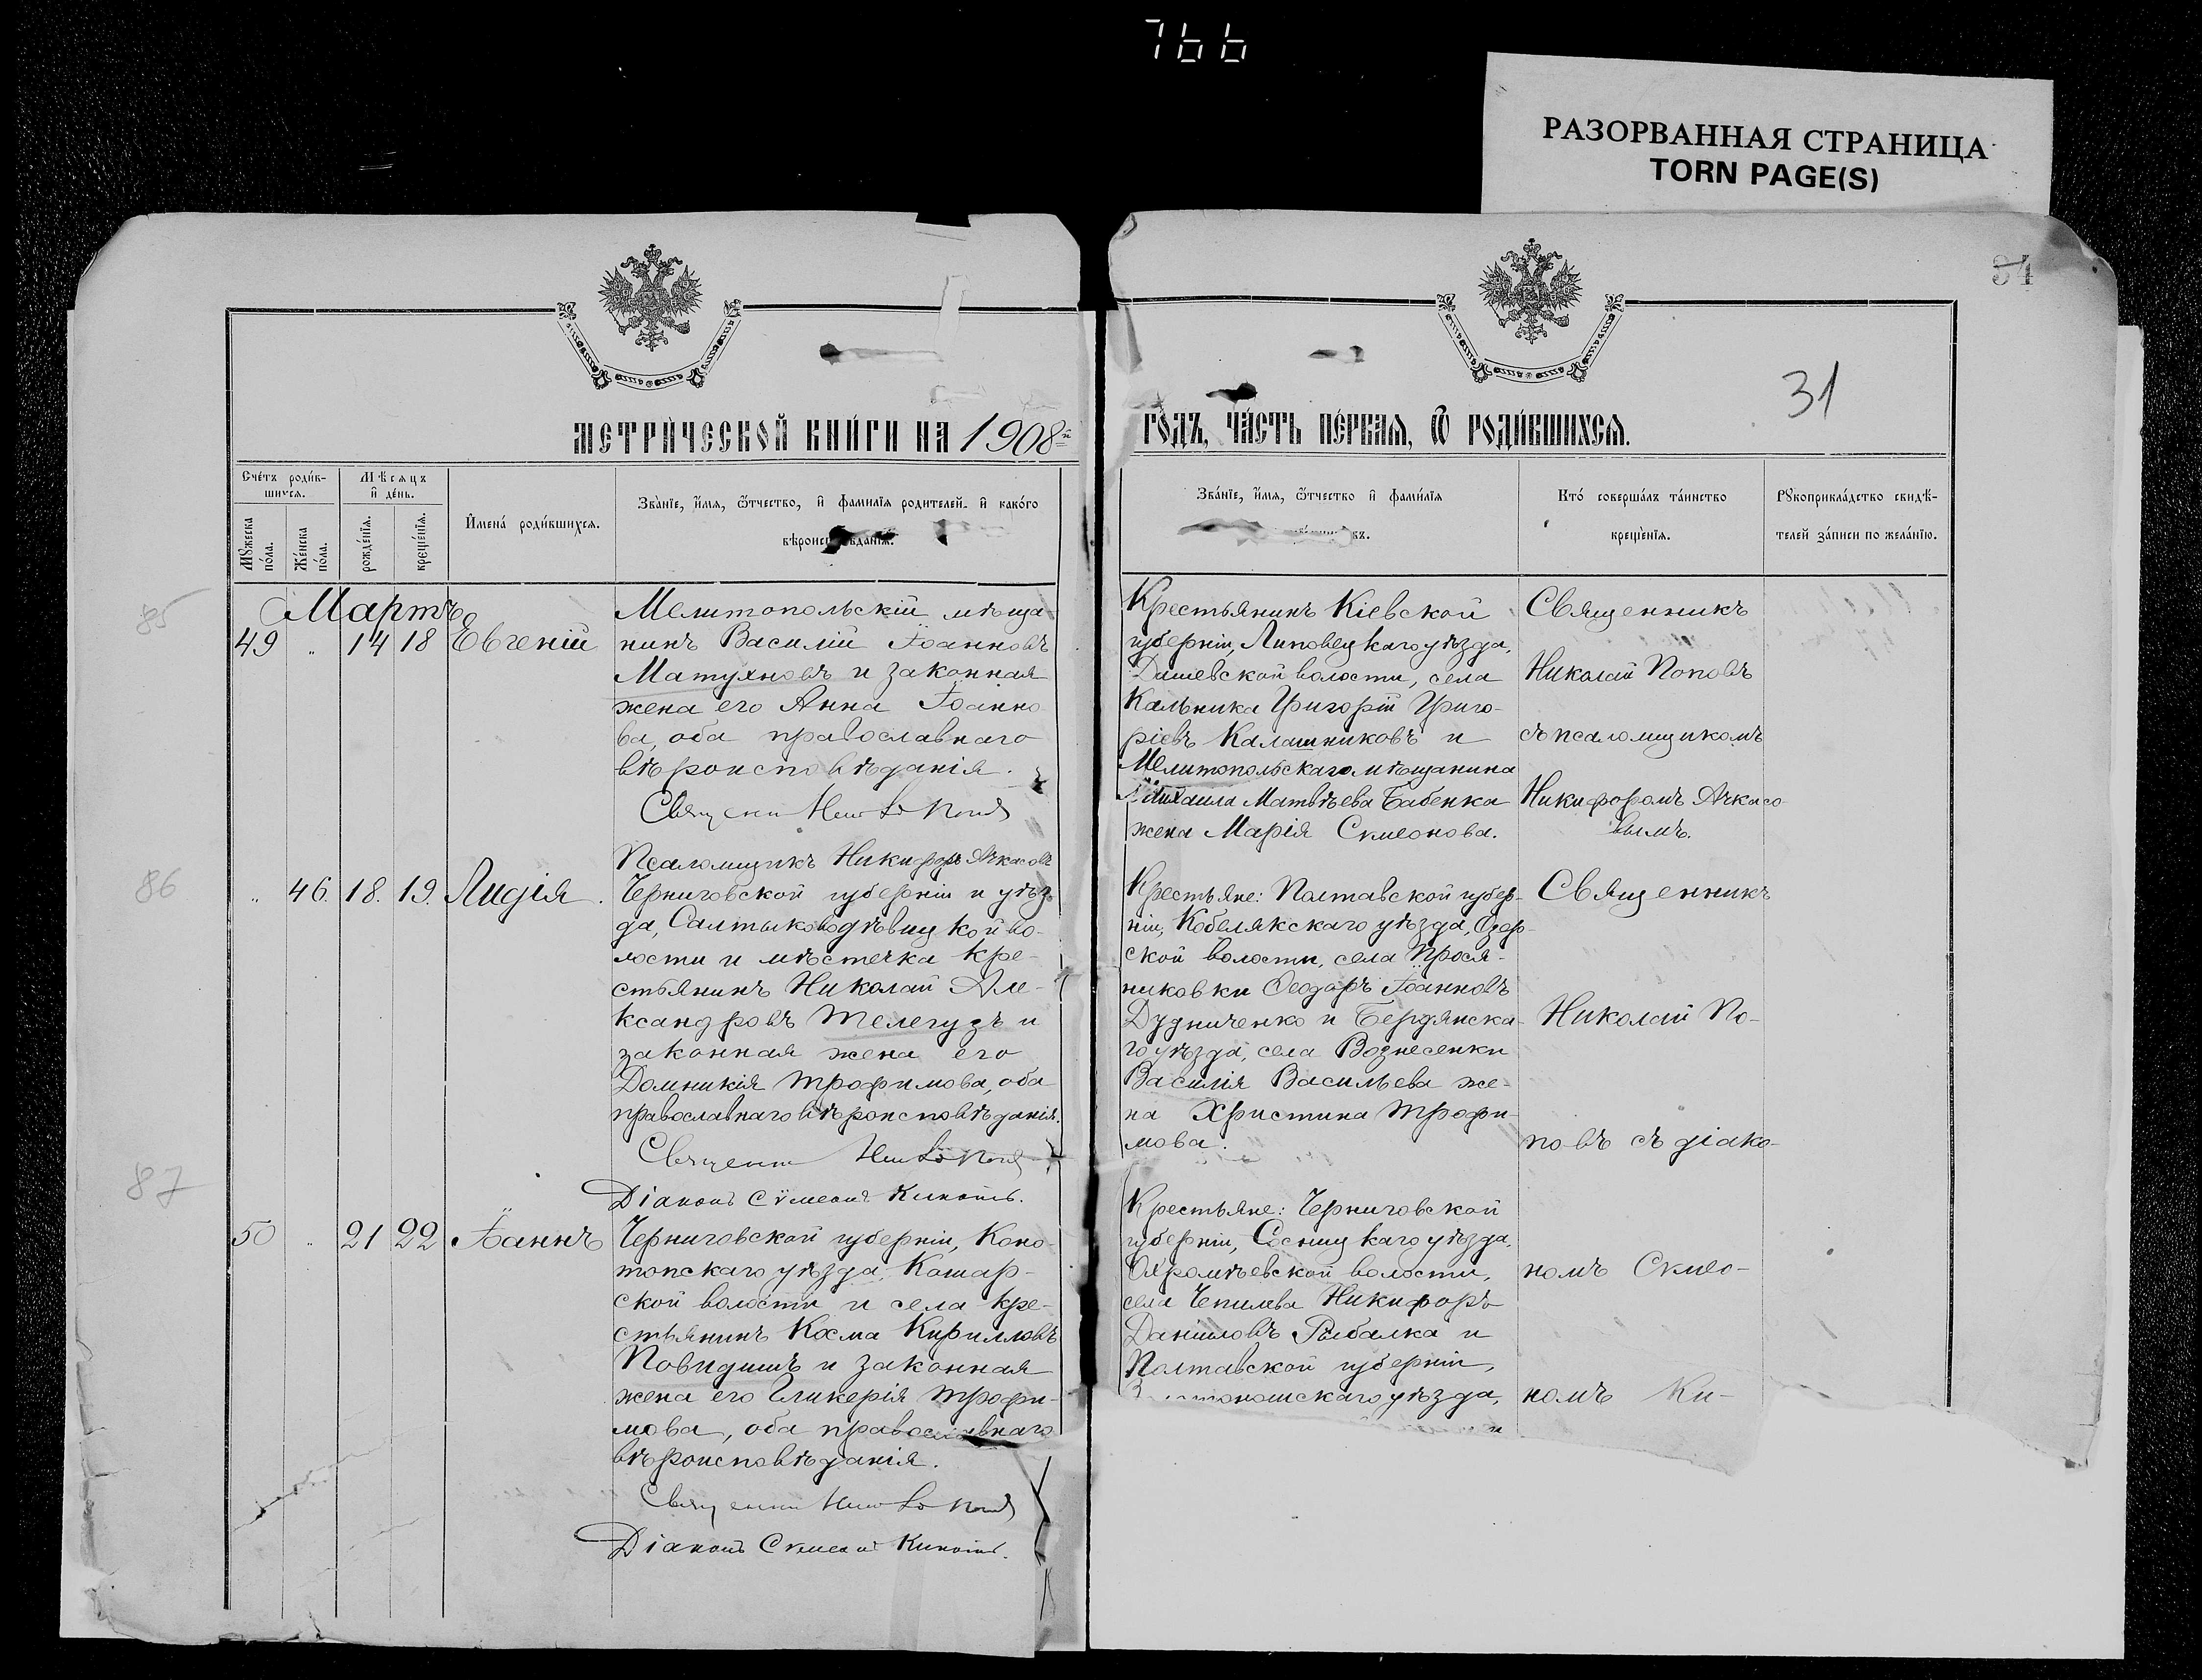 766
РАЗОРВАННАЯ СТРАНИЦА
TORN PAGE(S)
94
31
МЕТРИЧЕСКОЙ КНИГИ НА 1908й
ГОДЪ, ЧАСТЬ ПЕРВАЯ, Ѡ РОДИВШИХСЯ.
Счетъ родив-
шихся.
Мужеска
пола.
Женска
пола.
Мѣсяцъ
и день.
рожденія.
крещенія.
Имена родившихся.
Званіе, имя, ѿчество, и фамилія родителей, и какого
вѣроисповѣданія.
Званіе, имя, ѿчество и фамилія
Кто совершалъ таинство
крещенія.
Рукоприкладство свидѣ-
телей записи по желанію.
85
Мартъ
49 " 14 18 Евгеній
Мелитопольскій мѣща-
нинъ Василій Іоанновъ
Матухновъ и законная
жена его Анна Іоанно-
ва, оба православнаго
вѣроисповѣданія.
Псаломщикъ Никифоръ Ачкасовъ
Крестьянинъ Кіевской
губерніи, Липовецкаго уѣзда,
Дашевской волости, села
Кальника Григорій Григо-
ріевъ Калашниковъ и
Мелитопольскаго мѣщанина
Михаила Матвѣева Бабенка
жена Марія Сѵмеонова.
Священникъ
Николай Поповъ
съ псаломщикомъ
Никифоромъ Ачкасо-
вымъ.
86
" 46. 18. 19. Лидія.
Черниговской губерніи и уѣз-
да, Салтыководѣвицкой во-
лости и мѣстечка кре-
стьянинъ Николай Але-
ксандровъ Телегузъ и
законная жена его
Домникія Трофимова, оба
православнаго вѣроисповѣданія.
Діаконъ Сѵмеонъ
Крестьяне: Полтавской губер-
ніи, Кобелякскаго уѣзда, Озер-
ской волости, села Прося-
никовки Ѳеодоръ Іоанновъ
Дудниченко и Бердянска-
го уѣзда, села Вознесенки
Василія Васильева же-
на Христина Трофи-
мова.
Священникъ
Николай По-
повъ съ діако-
номъ Сѵмео-
номъ Ки-
87
50 " 21 22 Іоаннъ
Черниговской губерніи, Коно-
топскаго уѣзда, Кошар-
ской волости и села кре-
стьянинъ Косма Кирилловъ
Повидишъ и законная
жена его Гликерія Трофи-
мова, оба православнаго
вѣроисповѣданія.
Діаконъ Сѵмеонъ
Крестьяне: Черниговской
губерніи, Сосницкаго уѣзда,
Охромѣевской волости,
села Чепилева Никифоръ
Даніиловъ Рыбалка и
Полтавской губерніи,
уѣзда,